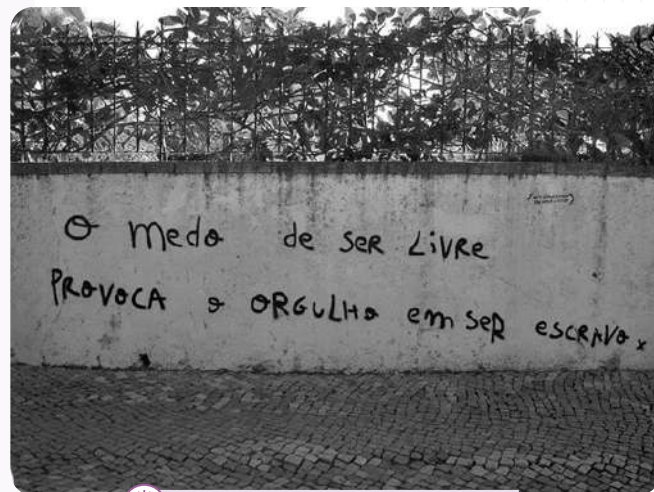 O medo de ser LiVRe
PROVOCA o ORGULHO em SeR eSCRAVO.